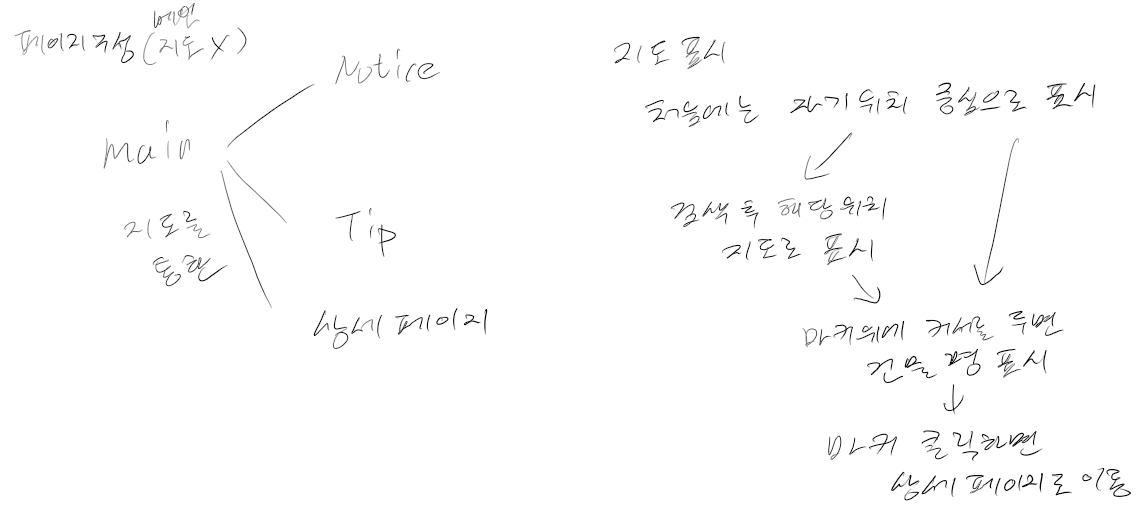 메인
페이지구성 (지도 X)
Notice
Main
지도를
통한
Tip
상세페이지
지도 표시
처음에는 자기위치 중심으로 표시
검색 후 해당위치
지도로 표시
마커위에 커서를 두면
건물 명 표시
마커 클릭하면
상세페이지로 이동